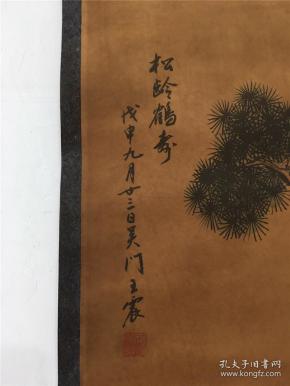 松龄鹤寿
戊申九月廿三日吴门王震
孔夫子旧书网
www.kongfz.com